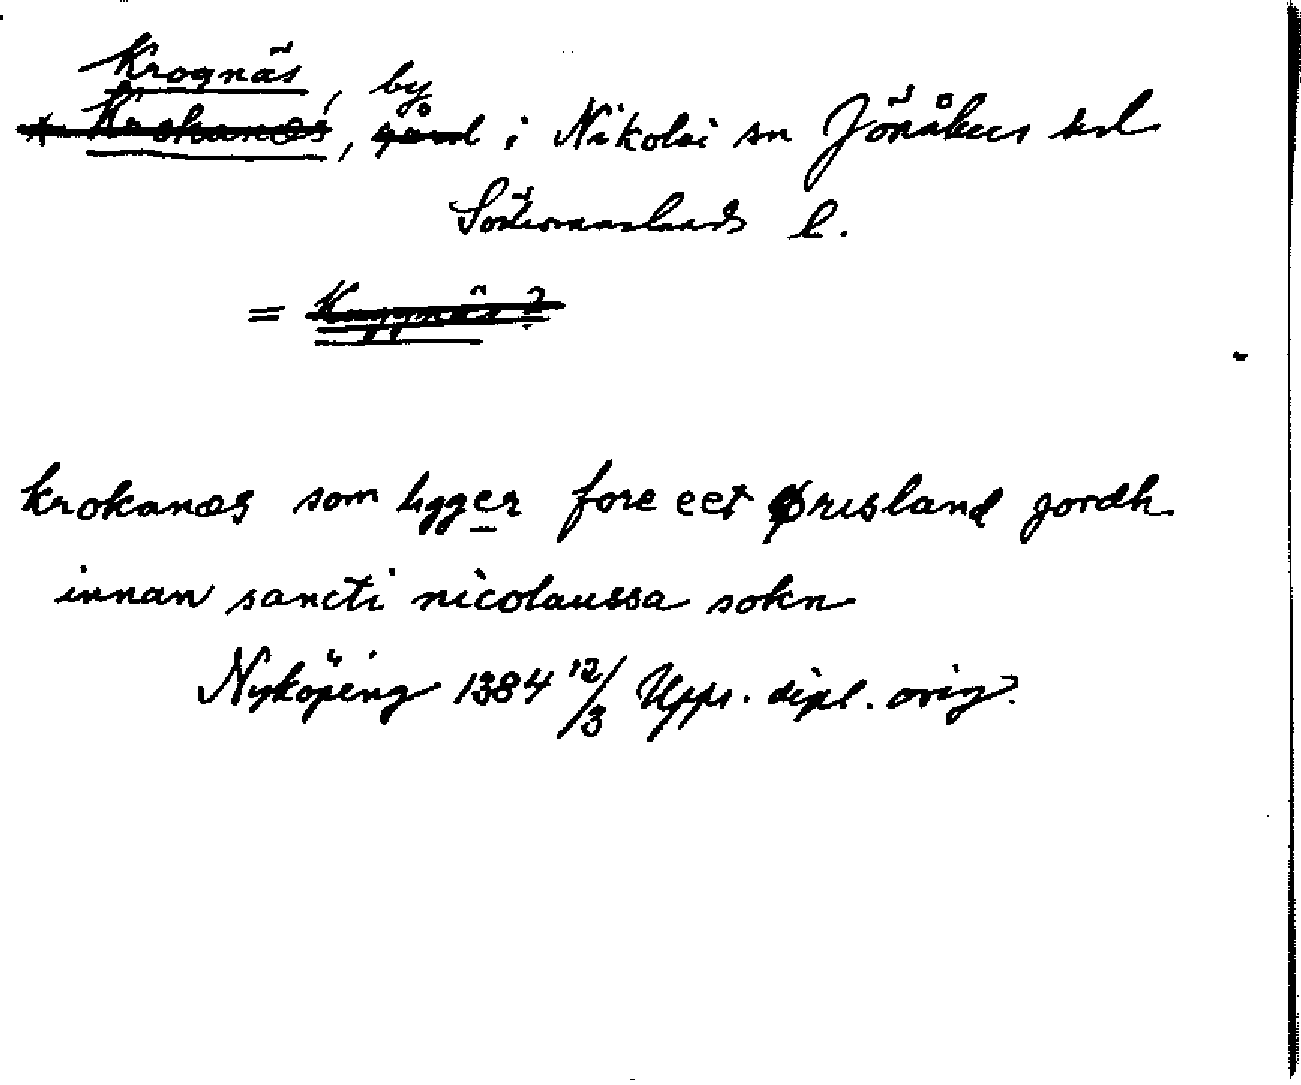 Krognäs, by
* Krokanæs, gård i Nikolai sn Jönåkers hd
Södermanlands l.
= Kuggnäs?
krokanæs som ligger fore eet ørisland jordh
innan sancti nicolaussa sokn
Nyköping 1384 12/3 Upps. dipl. orig.